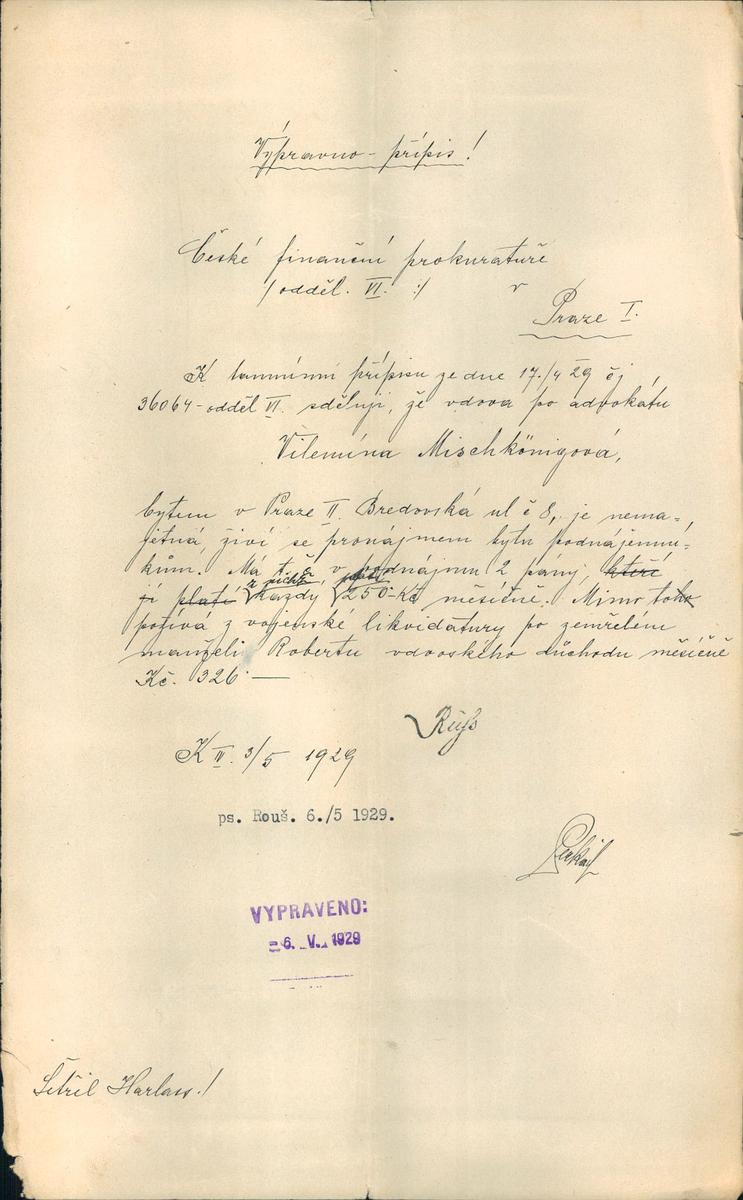 Výpravno - přípis!
České finanční prokuratuře
/ odděl. VI. :/ v
Praze I.
K tamnímu přípisu ze dne 17./4 29 čj
36064 - odděl VI. sděluji, že vdova po advokátu
Vilemína Mischkönigová,
bytem v Praze II. Bredovská ul č 8, je nema-
jetná, živí se pronájmem bytu podnájemní-
kům. Má t. č. v podnájmu 2 pány, kteří
z nichž platí
jí platí každý 250.- Kč měsíčně. Mimo toho
požívá z vojenské likvidatury po zemřelém
manželi Robertu vdovského důchodu měsíčně
Kč. 326.—
K IV. 3/5 1929
ps. Rouš. 6./5 1929.
VYPRAVENO:
6. V. 1929
Šetřil Harlass!